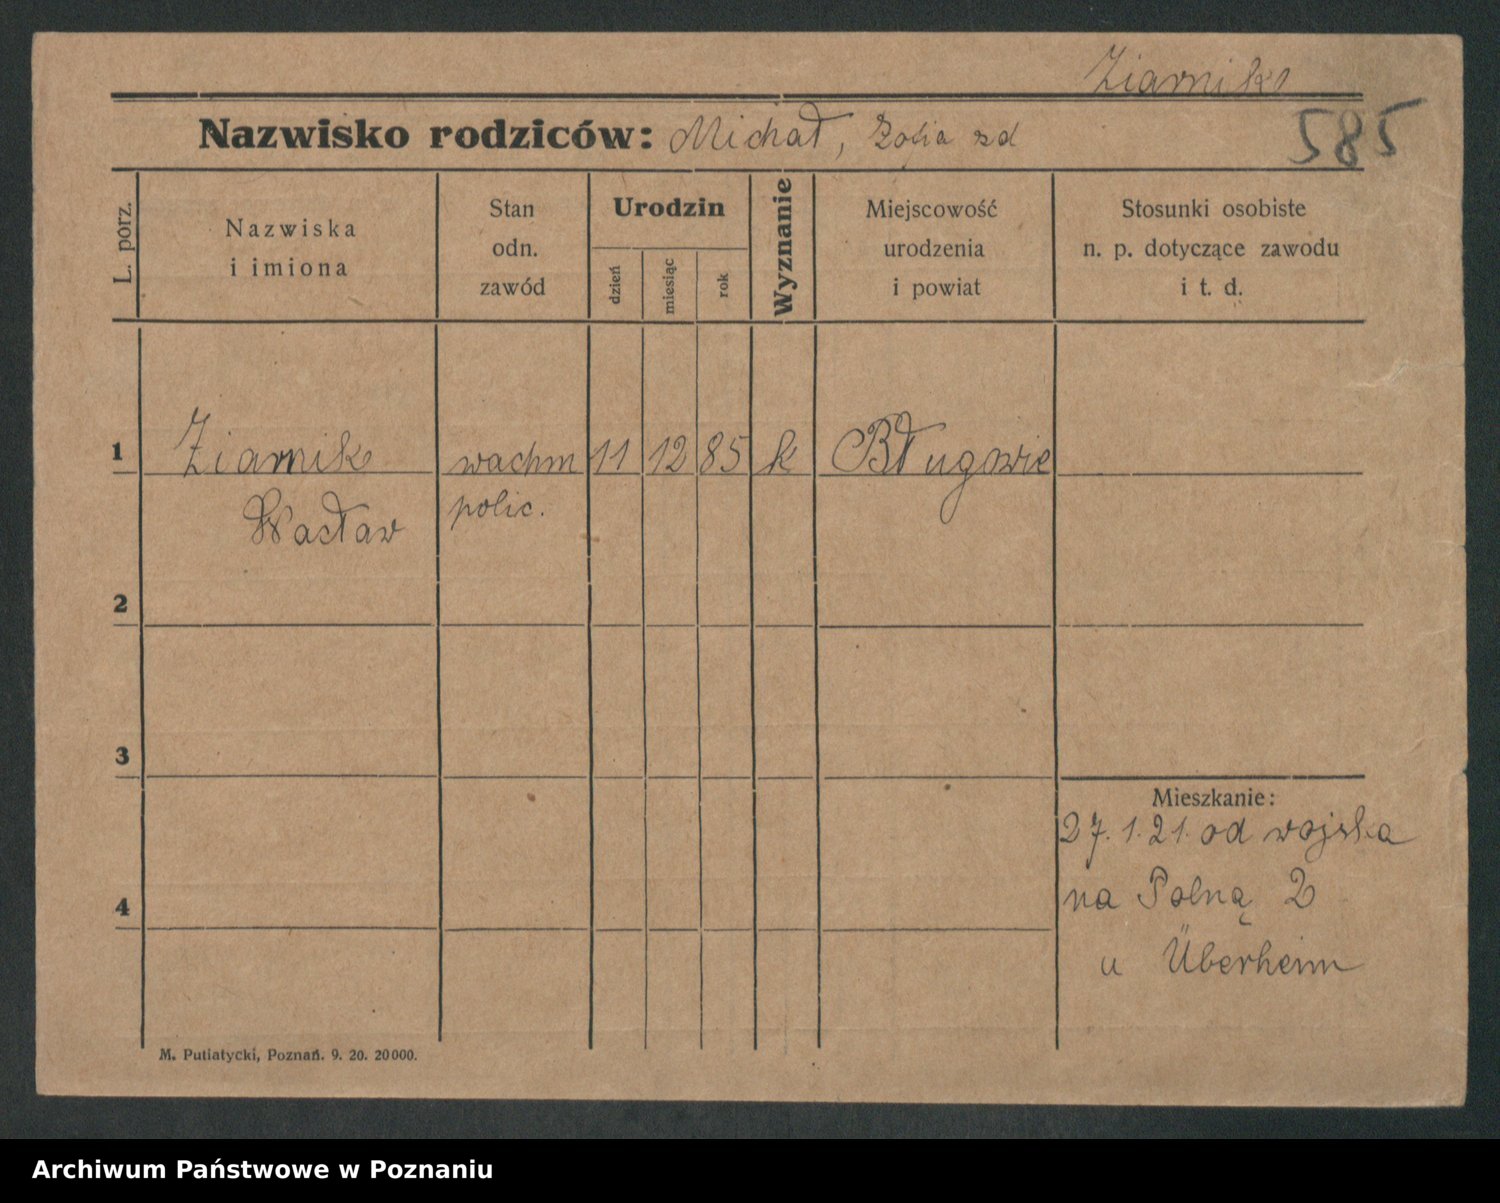 Ziarnik
Nazwisko rodziców: Michał, Zofia zd
585
L. porz.
Nazwiska
i imiona
Stan
odn.
zawód
Urodzin
dzień
miesiąc
rok
Wyznanie
Miejscowość
urodzenia
i powiat
Stosunki osobiste
n. p. dotyczące zawodu
i t. d.
1 Ziarnik wachm 11 12 85 k Bługowie
Wacław polic.
2
3
Mieszkanie:
27.1.21. od wojska
4 na Polną 2
u Überheim
M. Putiatycki, Poznań. 9. 20. 20000.
Archiwum Państwowe w Poznaniu